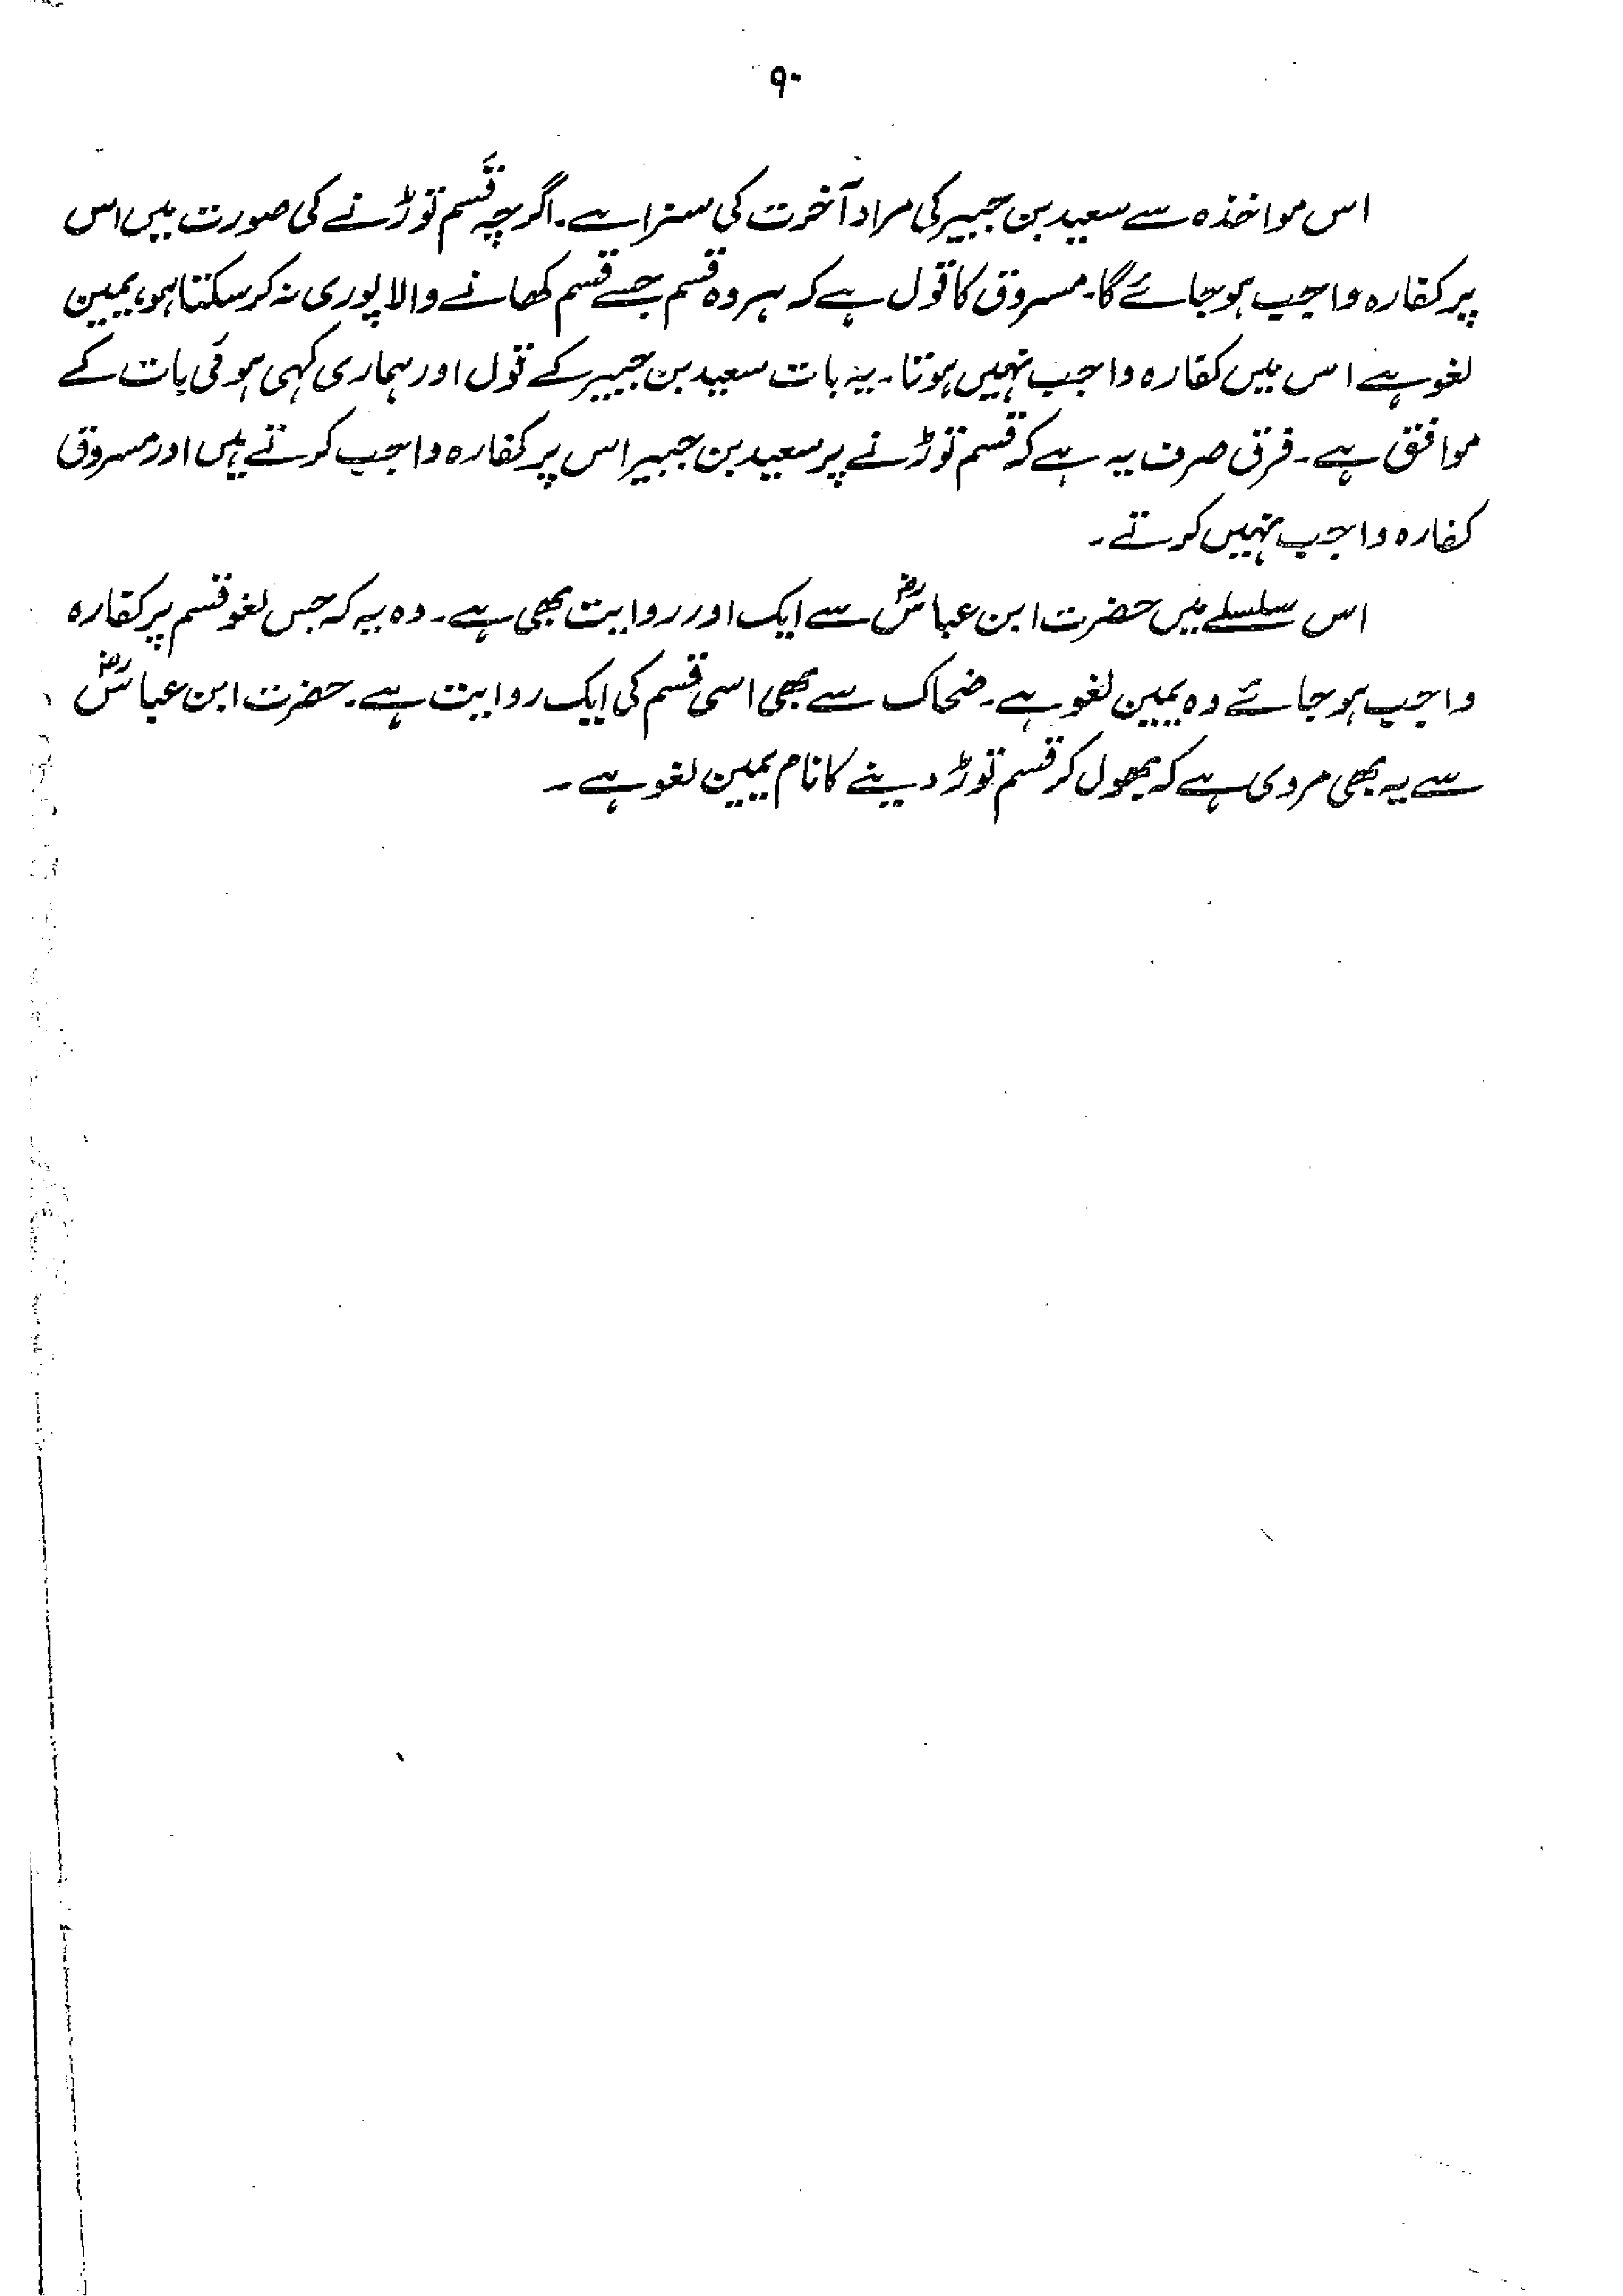 ۹۰
اس مواخذہ سے سعید بن جبیر کی مراد آخرت کی سزا ہے۔ اگرچہ قسم توڑنے کی صورت میں اس
پر کفارہ واجب ہو جائے گا۔ مسروق کا قول ہے کہ ہر وہ قسم جسے قسم کھانے والا پوری نہ کر سکتا ہو، یمین
لغو ہے اس میں کفارہ واجب نہیں ہوتا۔ یہ بات سعید بن جبیر کے قول اور ہماری کہی ہوئی بات کے
موافق ہے۔ فرق صرف یہ ہے کہ قسم توڑنے پر سعید بن جبیر اس پر کفارہ واجب کرتے ہیں اور مسروق
کفارہ واجب نہیں کرتے۔
اس سلسلے میں حضرت ابن عباسؓ سے ایک اور روایت بھی ہے۔ وہ یہ کہ جس لغو قسم پر کفارہ
واجب ہو جائے وہ یمین لغو ہے۔ ضحاک سے بھی اسی قسم کی ایک روایت ہے۔ حضرت ابن عباسؓ
سے یہ بھی مروی ہے کہ بھول کر قسم توڑ دینے کا نام یمین لغو ہے۔